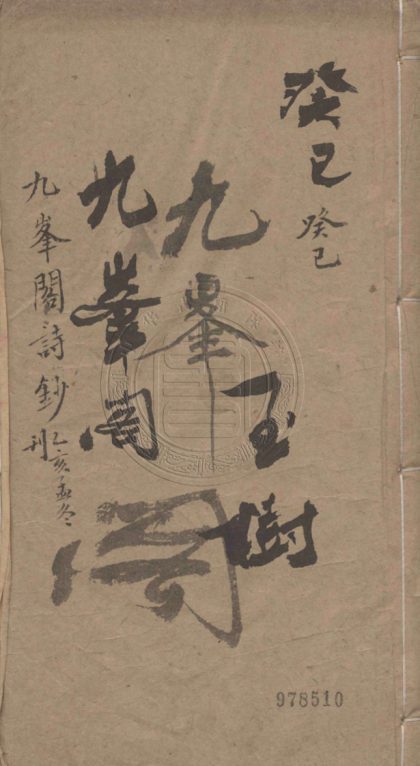 癸巳
癸巳
玉樹
九峯
九峯阁
九峯閣詩鈔
乙亥孟冬
刊
978510